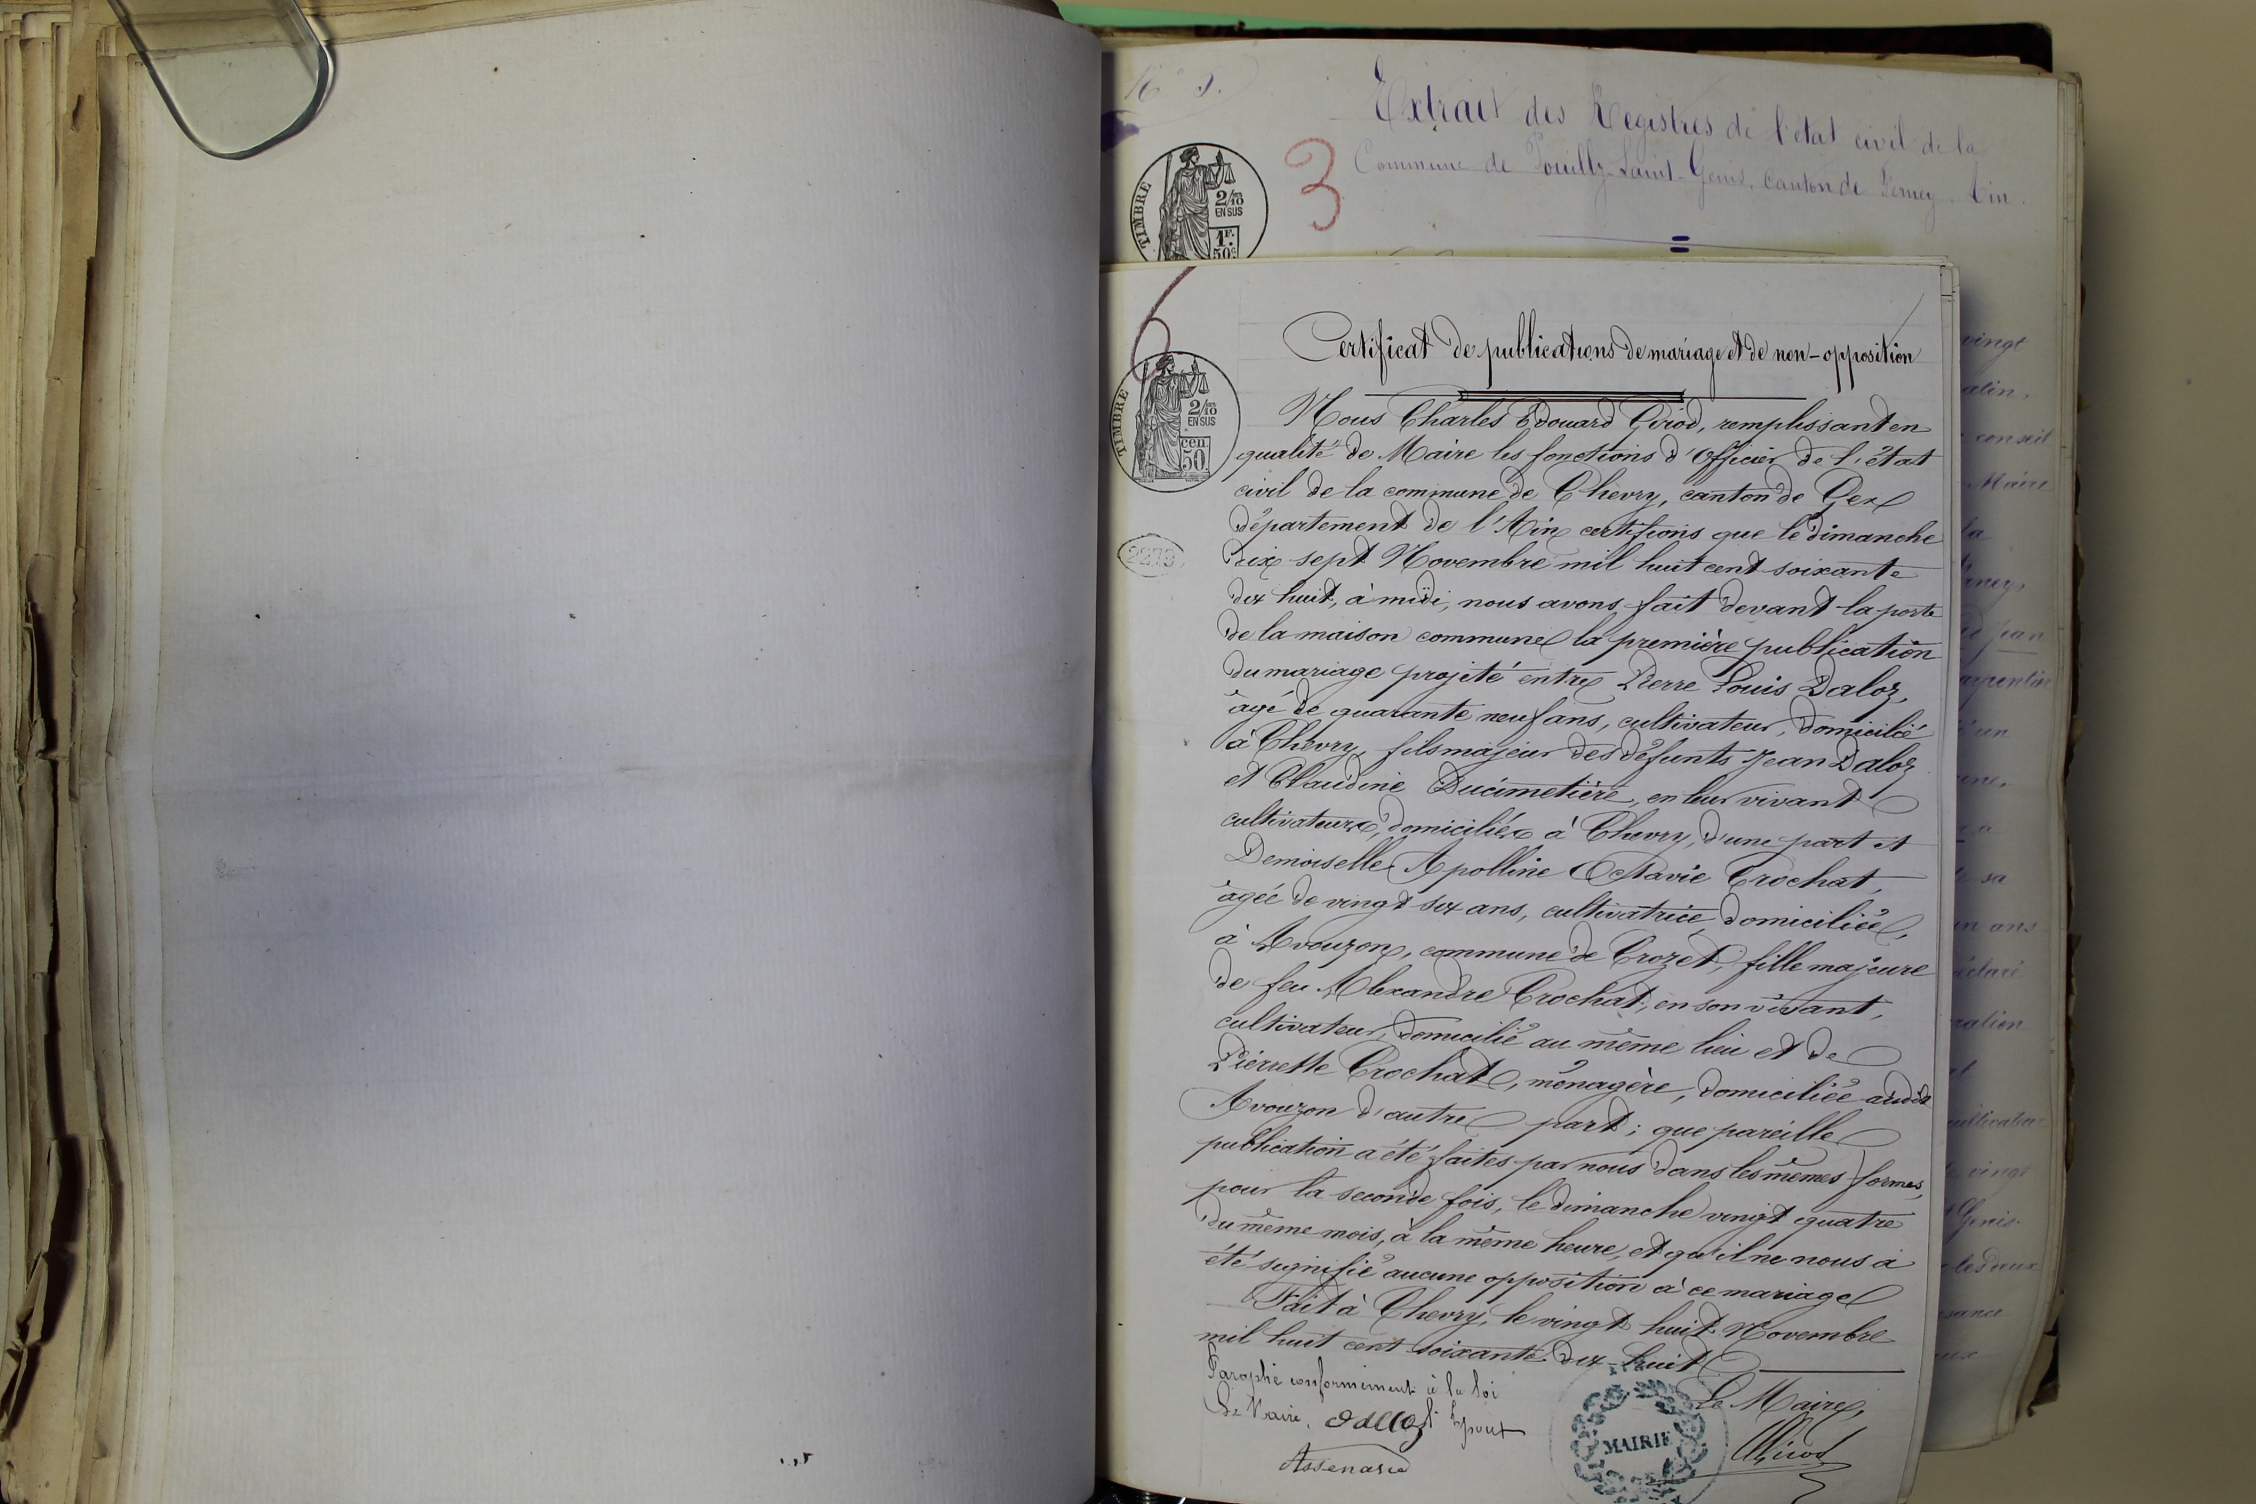 Extrait des Registres de l'état civil de la
Commune de Pouilly-Saint-Genis, canton de Ferney Ain.
3
TIMBRE
2/10 EN SUS
1F. 50c.
6
Certificat de publications de mariage et de non-opposition
TIMBRE
2/10 EN SUS
cen 50
2273
Nous Charles Edouard Girod, remplissant en
qualité de Maire les fonctions d'Officier de l'état
civil de la commune de Chevry, canton de Gex
département de l'Ain certifions que le dimanche
Dix sept Novembre mil huit cent soixante
dix huit, à midi, nous avons fait devant la porte
de la maison commune la première publication
du mariage projeté entre Pierre Louis Daloz,
âgé de quarante neuf ans, cultivateur, domicilié
à Chevry, fils majeur des défunts Jean Daloz
et Claudine Ducimetière, en leur vivant
cultivateurs, domiciliés à Chevry, d'une part et
Demoiselle Apolline Octavie Crochat,
âgée de vingt six ans, cultivatrice, domiciliée,
à Avouzon, commune de Crozet, fille majeure
de feu Alexandre Crochat, en son vivant,
cultivateur, domicilié au même lieu et de
Pierrette Crochat, ménagère, domiciliée audit
Avouzon d'autre part; que pareille
publication a été faites par nous dans les mêmes formes,
pour la seconde fois, le dimanche vingt quatre
du même mois, à la même heure, et qu'il ne nous a
été signifié aucune opposition à ce mariage
Fait à Chevry, le vingt huit Novembre
mil huit cent soixante dix-huit
Paraphé conformément à la loi
Le Maire,
Le Maire,
MAIRIE
Girod
vingt
conseil
Maire
la
un
sa
ans
vingt
Genis